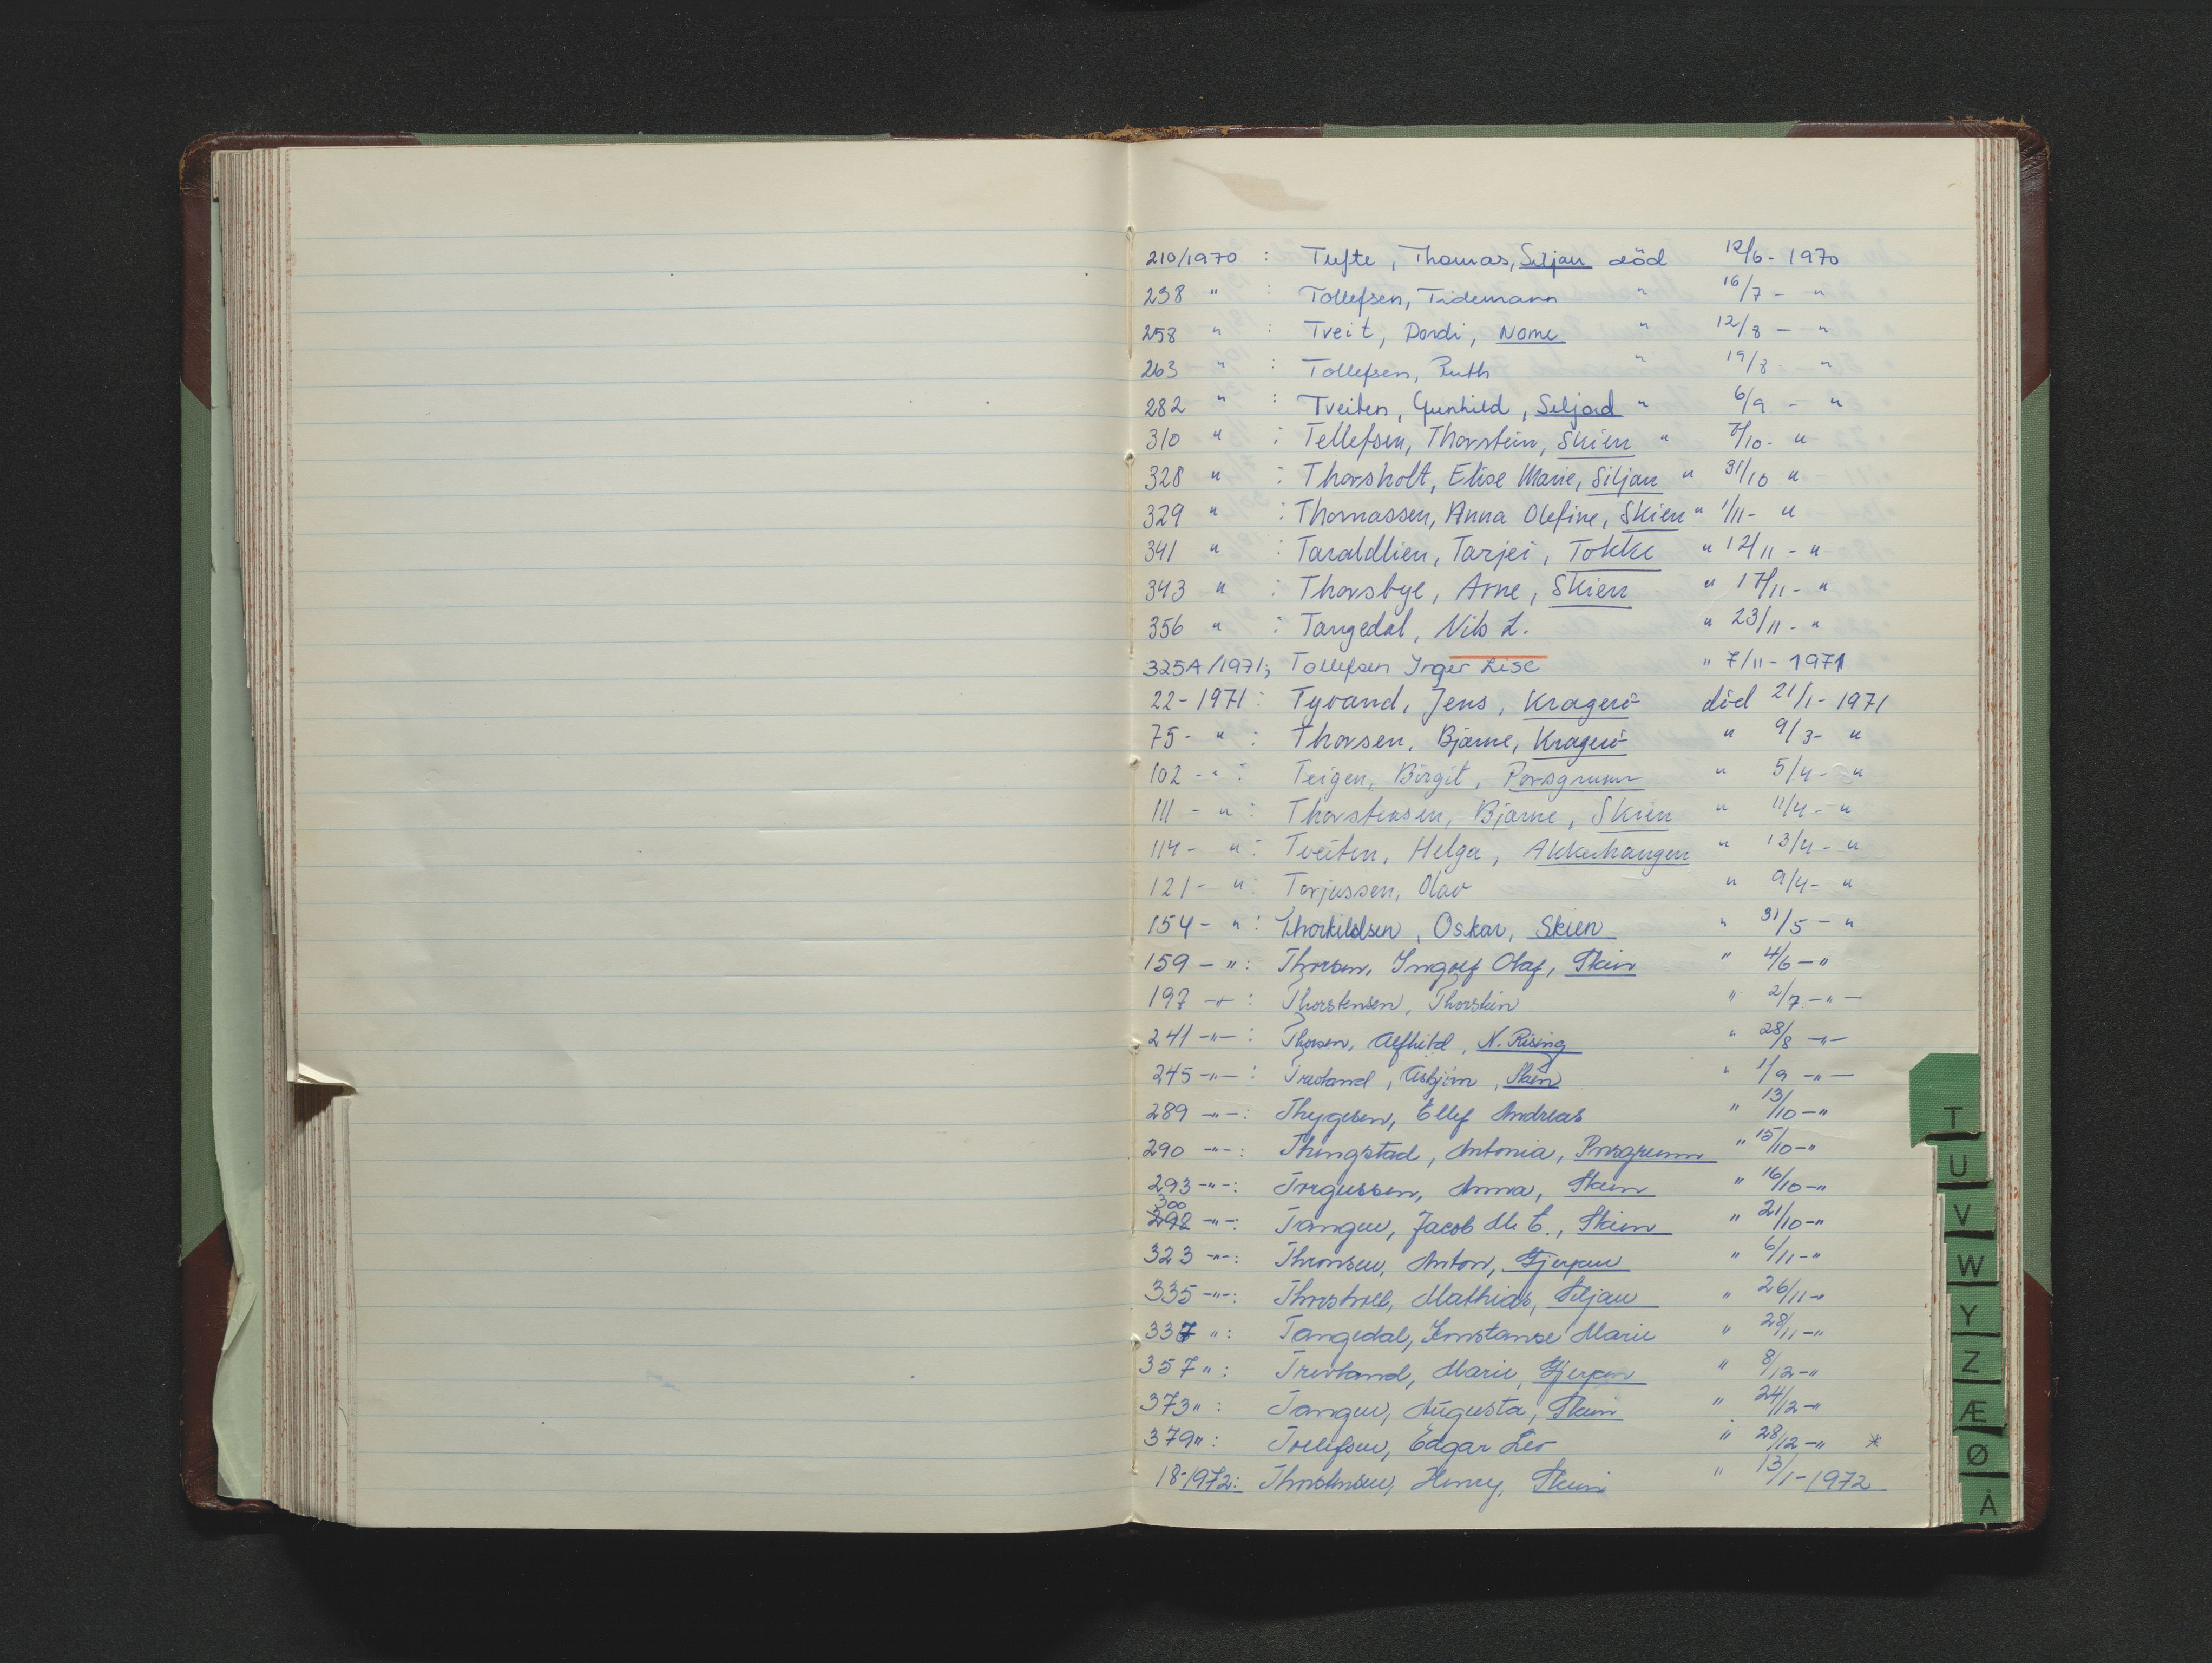 210/1970 : Tufte, Thomas, Siljan död 12/6 - 1970
238 " : Tollefsen, Tidemann " 16/7 - "
258 " : Tveit, Dordi, Nome " 12/8 - "
263 " : Tollefsen, Ruth " 19/8 - "
282 " : Tveiten, Gunhild, Seljord " 6/9 - "
310 " : Tellefsen, Thorstein, Skien " /10 - "
328 " : Thorsholt, Elise Marie, Siljan " 31/10 "
329 " : Thomassen, Anna Olefine, Skien " 1/11 - "
341 " : Taraldlien, Tarjei, Tokke " 12/11 - "
343 " : Thorsbye, Arne, Skien " 17/11 - "
356 " : Tangedal, Nils L. " 23/11 - "
325A/1971; Tollefsen Inger Lise " 7/11 - 1971
22 - 1971 : Tyvand, Jens, Kragerö död 21/1 - 1971
75 - " : Thorsen, Bjarne, Kragerö " 9/3 - "
102 - " : Teigen, Birgit, Porsgrunn " 5/4 - "
111 - " : Thorstensen, Bjarne, Skien " 11/4 - "
114 - " : Tveiten, Helga, Akkerhaugen " 13/4 - "
121 - " : Torjussen, Olav " 9/4 - "
154 - " : Thorkildsen, Oskar, Skien " 31/5 - "
159 - " : Thorsen, Ingolf Olaf, Skien " 4/6 - "
197 - " : Thorstensen, Thorstein " 2/7 - " -
241 - " - : Thorsen, Alfhild, N. Rising " 28/8 - " -
245 - " - : Trevland, Asbjørn, Skien " 1/9 - " -
289 - " - : Thygesen, Ellef Andreas " 13/10 - "
290 - " - : Thingstad, Antonia, Porsgrunn " 15/10 - "
293 - " - : Torgussen, Anna, Skien " 16/10 - "
300
298 - " - : Tangen, Jacob M. C., Skien " 21/10 - "
323 - " - : Thronsen, Anton, Gjerpen " 6/11 - "
335 - " - : Thorsholt, Mathias, Siljan " 26/11 - "
337 " : Tangedal, Konstanse Marie " 28/11 - "
357 " : Trevland, Marie, Gjerpen " 8/12 - "
373 " : Tangen, Augusta, Skien " 24/12 - "
379 " : Tollefsen, Edgar Leo " 28/12 - " *
18 - 1972 : Thorstensen, Henry, Skien " 13/1 - 1972
T
U
V
W
Y
Z
Æ
Ø
Å